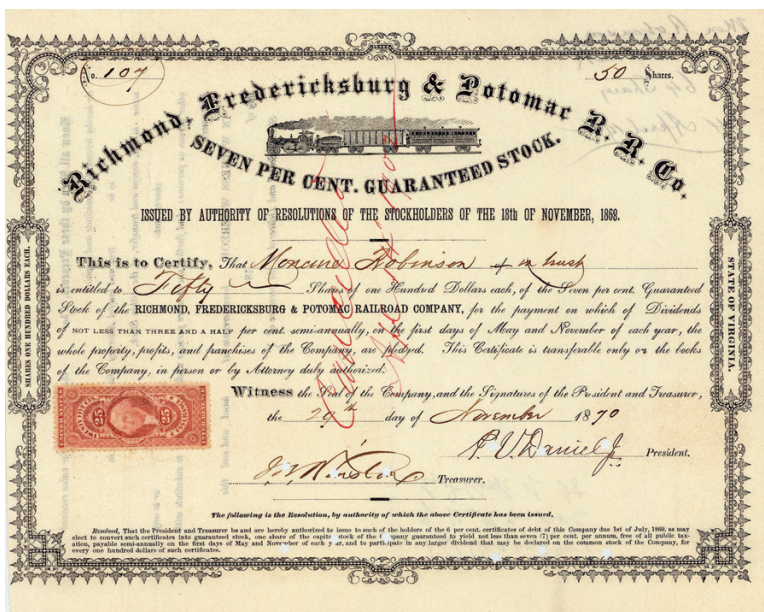 No. 107
50 Shares.
Richmond, Fredericksburg & Potomac R. R. Co.
SEVEN PER CENT. GUARANTEED STOCK.
ISSUED BY AUTHORITY OF RESOLUTIONS OF THE STOCKHOLDERS OF THE 18th OF NOVEMBER, 1868.
This is to Certify, That Moncure Robinson in trust
is entitled to Fifty Shares of One Hundred Dollars each, of the Seven per cent. Guaranteed
Stock of the RICHMOND, FREDERICKSBURG & POTOMAC RAILROAD COMPANY, for the payment on which of Dividends
of NOT LESS THAN THREE AND A HALF per cent. semi-annually, on the first days of May and November of each year, the
whole property, profits, and franchises of the Company, are pledged. This Certificate is transferable only on the books
of the Company, in person or by Attorney duly authorized.
Witness the Seal of the Company, and the Signatures of the President and Treasurer,
the 29th day of November 1870
P. V. Daniel Jr. President.
J. B. Winston Treasurer.
The following is the Resolution, by authority of which the above Certificate has been issued.
Resolved, That the President and Treasurer be and are hereby authorized to issue to such of the holders of the 6 per cent. certificates of debt of this Company due 1st of July, 1869, as may
elect to convert such certificates into guaranteed stock, one share of the capital stock of the Company guaranteed to yield not less than seven (7) per cent. per annum, free of all public tax-
ation, payable semi-annually on the first days of May and November of each year, and to participate in any larger dividend that may be declared on the common stock of the Company, for
every one hundred dollars of such certificates.
SHARES ONE HUNDRED DOLLARS EACH.
STATE OF VIRGINIA.
Cancelled
25 25